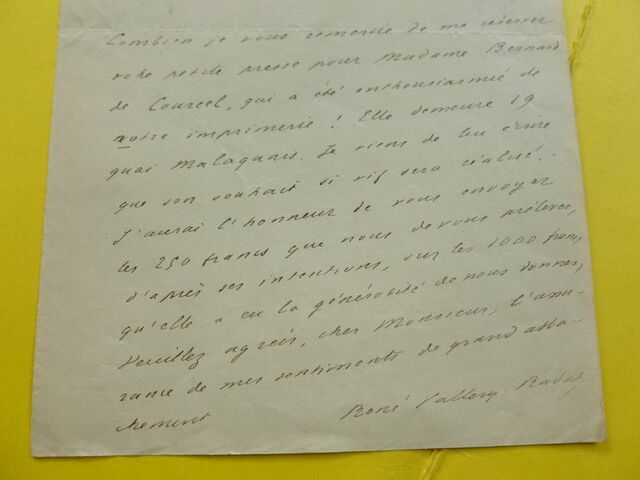 Combien je vous remercie de me réserver
votre petite presse pour Madame Bernard
de Courcel, qui a été enthousiasmée de
notre imprimerie ! Elle demeure 19
quai Malaquais. Je viens de lui écrire
que son souhait si vif sera réalisé.
J'aurai l'honneur de vous envoyer
les 250 francs que nous devons prélever,
d'après ses intentions, sur les 1000 francs
qu'elle a eu la générosité de nous donner,
Veuillez agréer, cher Monsieur, l'assu-
rance de mes sentiments de grand atta-
chement
René Vallery-Radot